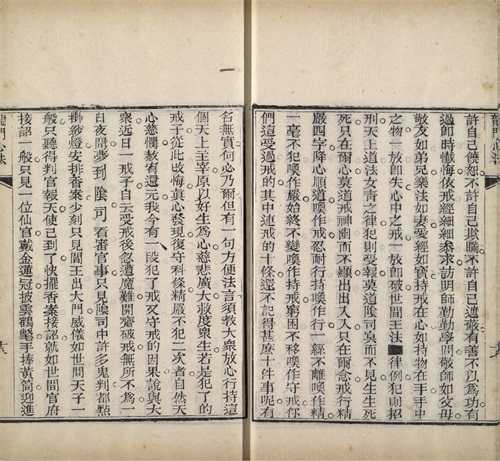 龍門心法
許自己饒恕不許自己欺瞞不許自己違嚴有善不以爲功有
過卽時懺悔依戒經細細參求訪明師勤勤學問敬師如父母
敬友如弟兄樂法如妻愛經如寶持戒在心如持物在手手中
之物一放卽失心中之戒一放卽破世間王法律例犯則招
刑天上道法女青之律犯則受報莫道陰司冥而不見生生死
死只在爾心莫道戒神幽而不顯出出入入只在爾念戒行精
嚴四字降心順道喚作戒忍耐行持喚作行一絲不離喚作精
一毫不犯喚作嚴始終不變喚作持戒窮困不移喚作守戒你
們這受過戒的其中連戒的十條還不記得甚麽十件事呢有
名無實何必乃爾但有一句方便法言須教大衆放心行持這
個天上主宰原以好生爲心慈悲廣大救度衆生若是犯了的
戒子從此改悔眞心發現復守科條精嚴不犯一次者自然天
心慈憫赦宥還元我今有一段犯了戒又守戒的因果說與大
衆近日一戒子自云受戒後忽遭魔難開齋破戒無所不爲一
日夜間夢到陰司看審官事只見陰司中許多鬼判都點
掛紗燈安排香案少刻只見閻王出大門威儀如世間天子一
般只聽得判官報天使已到了快擺香案接詔就如世間官府
接詔一般只見一位仙官戴金蓮冠披雲鶴氅手捧黃簡迎進
龍門心法